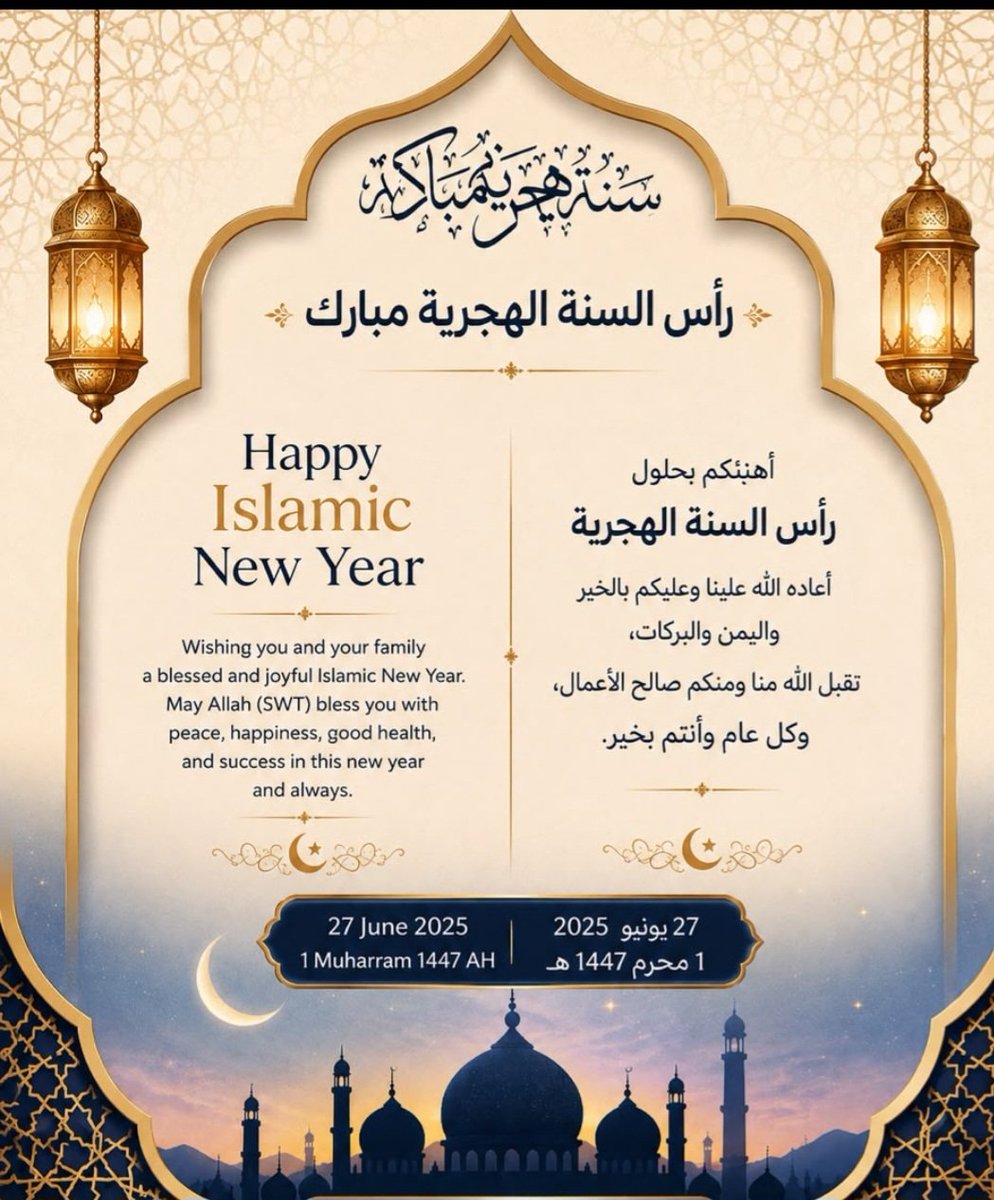 سنة هجرية مباركة
رأس السنة الهجرية مبارك
Happy
Islamic
New Year
Wishing you and your family
a blessed and joyful Islamic New Year.
May Allah (SWT) bless you with
peace, happiness, good health,
and success in this new year
and always.
أهنئكم بحلول
رأس السنة الهجرية
أعاده الله علينا وعليكم بالخير
واليمن والبركات،
تقبل الله منا ومنكم صالح الأعمال،
وكل عام وأنتم بخير.
27 June 2025
1 Muharram 1447 AH
27 يونيو 2025
1 محرم 1447 هـ